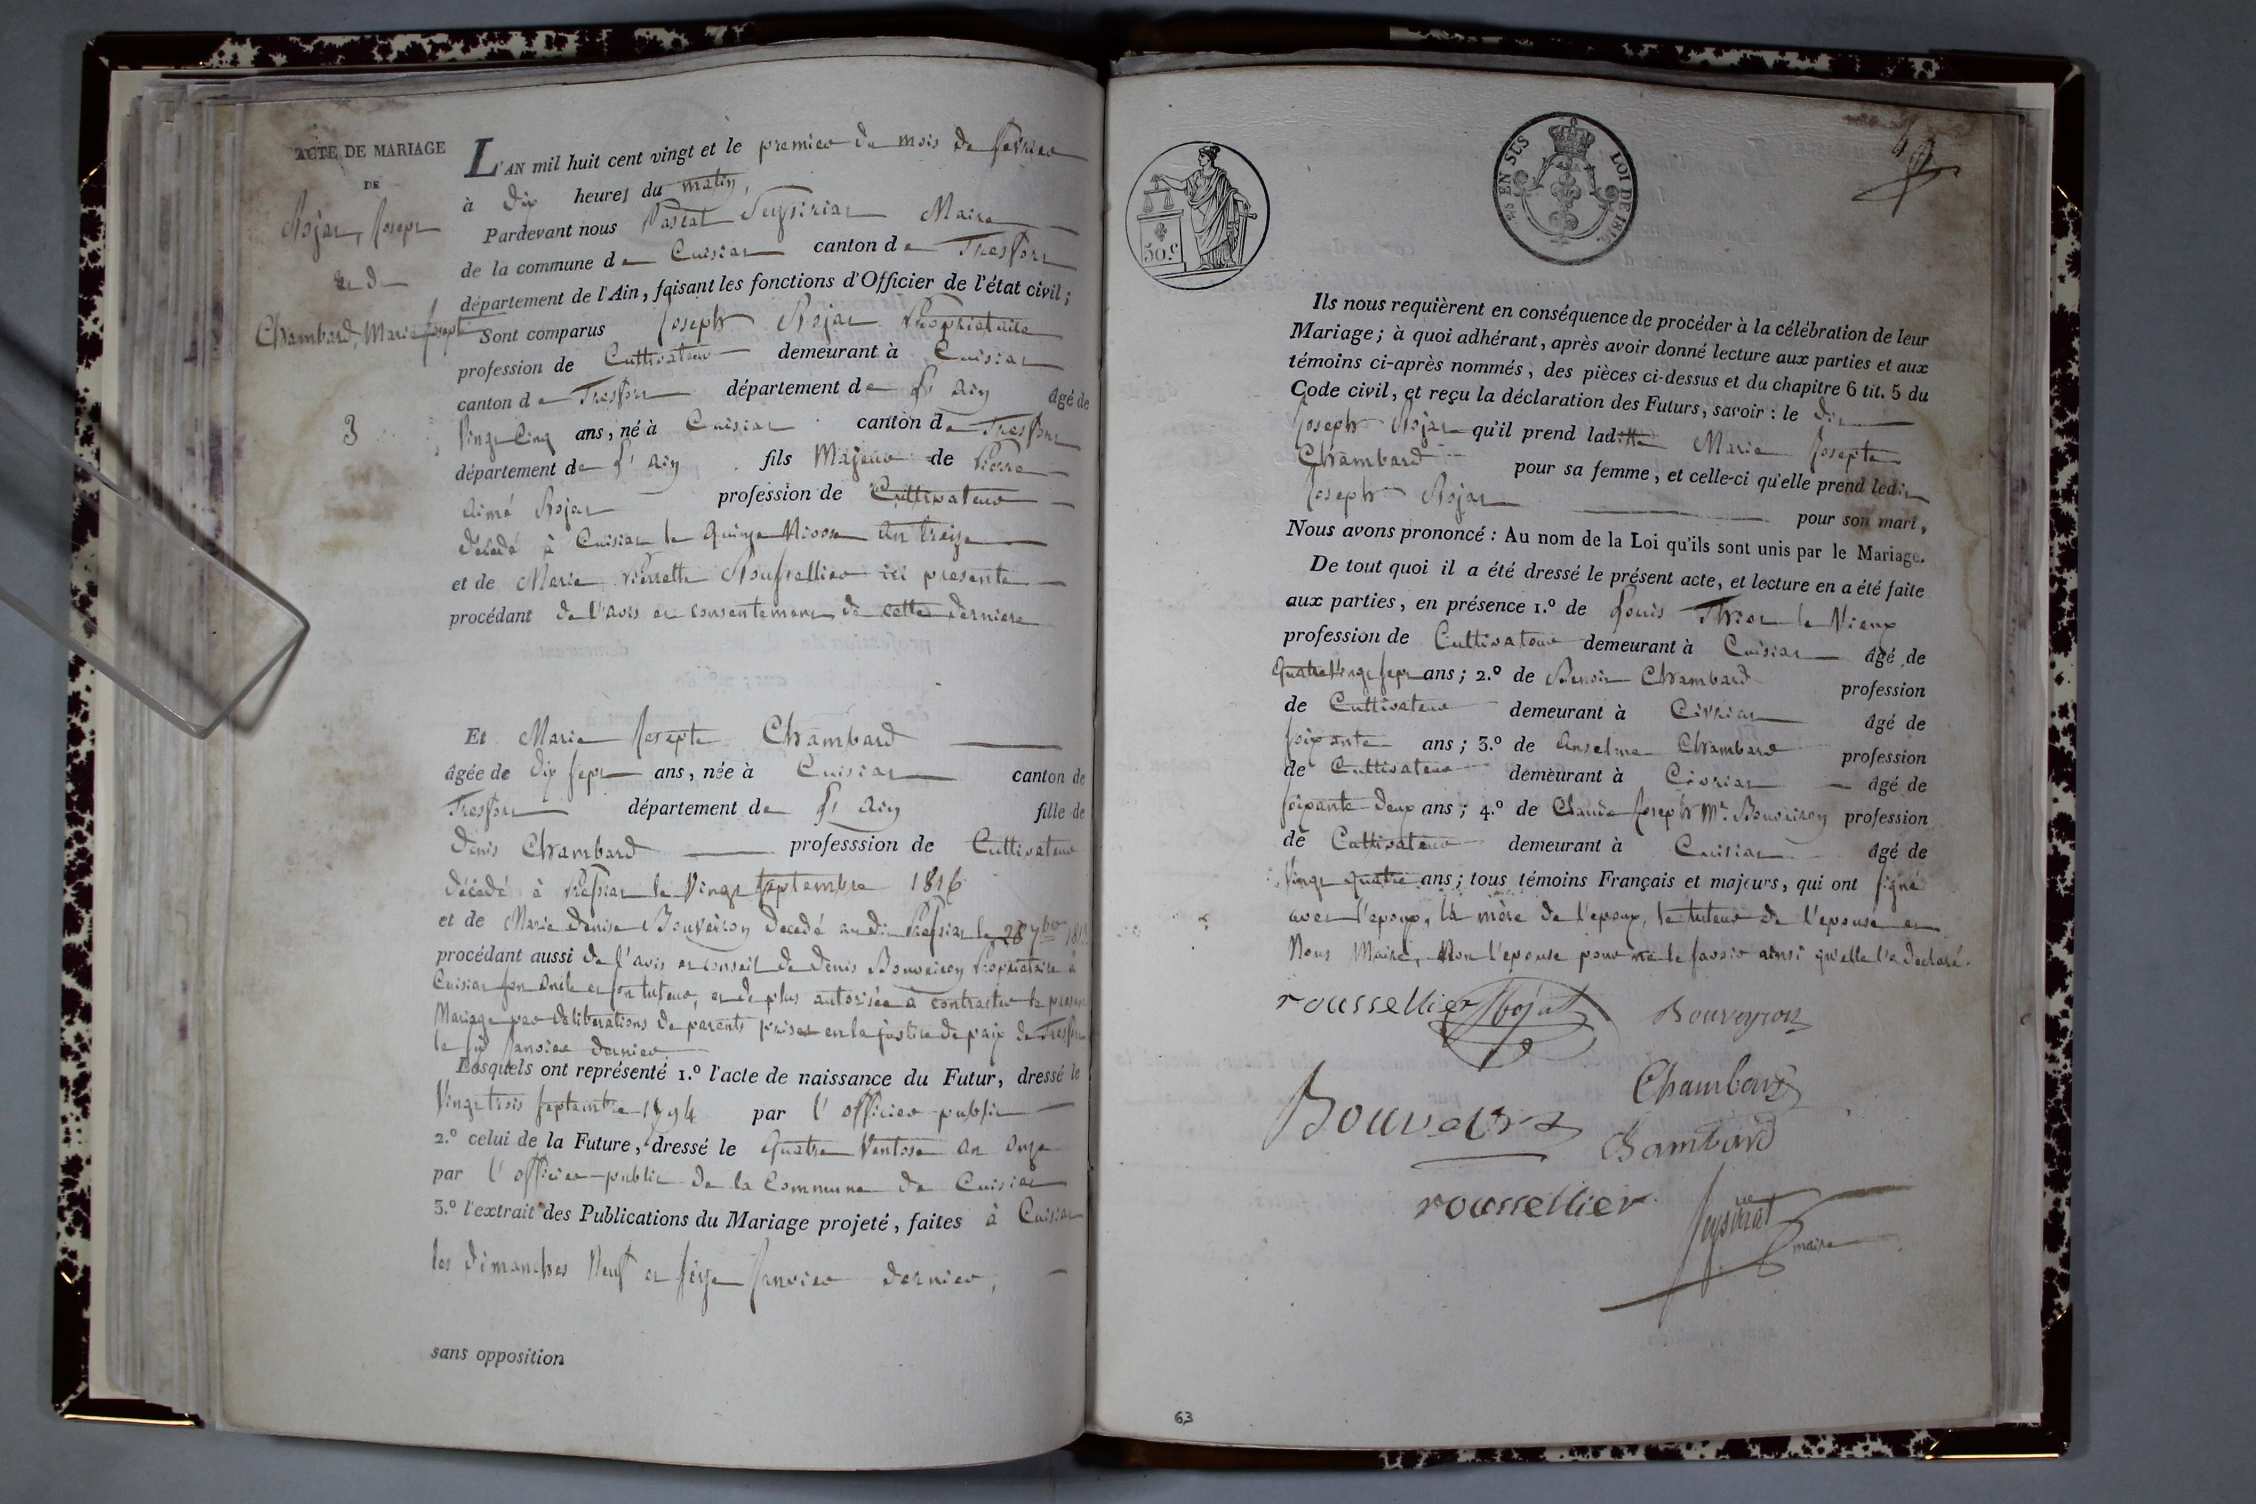 ACTE DE MARIAGE
DE
Rojat, Joseph
et de
Chambard, Marie Josepte
3
L'AN mil huit cent vingt et le premier du mois de fevrier
à dix heures du matin,
Pardevant nous Pascal Seysiriat Maire
de la commune de Cuisiat canton de Treffort
département de l'Ain, faisant les fonctions d'Officier de l'état civil;
Sont comparus Joseph Rojat Propriétaire
profession de Cultivateur demeurant à Cuisiat
canton de Treffort département de L'Ain âgé de
Vingt Cinq ans, né à Cuisiat canton de Treffort
département de L'Ain fils Majeur de Pierre
Aimé Rojat profession de Cultivateur
décédé à Cuisiat le Quinze Nivose An treize
et de Marie Pierrette Roussellier ici presente
procédant de l'avis et consentement de cette derniere
Et Marie Josepte Chambard
âgée de dix sept ans, née à Cuisiat canton de
Treffort département de L'Ain fille de
Denis Chambard professsion de Cultivateur
décédé à Pressiat le Vingt Septembre 1816
et de Marie denise Bouveiron decedé audit Pressiat le 28 7bre
procédant aussi de l'avis et conseil de denis Bouveiron Propriétaire à
Cuisiat son Oncle et son tuteur, et de plus autorisée à contracter le present
Mariage par déliberations de parents prises en la justice de paix de Treffort
le six Janvier dernier
Lesquels ont représenté 1.º l'acte de naissance du Futur, dressé le
Vingt trois Septembre 1794 par l'officier public
2.º celui de la Future, dressé le Quatre Ventose An onze
par l'officier public de la Commune de Cuisiat
3.º l'extrait des Publications du Mariage projeté, faites à Cuisiat
les dimanches Neuf et seize Janvier dernier,
sans opposition
EN SUS
LOI DE 1816
50 c.
Ils nous requièrent en conséquence de procéder à la célébration de leur
Mariage; à quoi adhérant, après avoir donné lecture aux parties et aux
témoins ci-après nommés, des pièces ci-dessus et du chapitre 6 tit. 5 du
Code civil, et reçu la déclaration des Futurs, savoir: le dit
Joseph Rojat qu'il prend laditte Marie Josepte
Chambard pour sa femme, et celle-ci qu'elle prend ledit
Joseph Rojat pour son mari,
Nous avons prononcé: Au nom de la Loi qu'ils sont unis par le Mariage.
De tout quoi il a été dressé le présent acte, et lecture en a été faite
aux parties, en présence 1.º de Louis le Vieux
profession de Cultivateur demeurant à Cuisiat âgé de
Quatre Vingt sept ans; 2.º de Benoit Chambard profession
de Cultivateur demeurant à Civriat âgé de
soixante ans; 3.º de Anselme Chambard profession
de Cultivateur demeurant à Civriat âgé de
soixante deux ans; 4.º de Claude Joseph Mie Bouveiron profession
de Cultivateur demeurant à Cuisiat âgé de
Vingt quatre ans; tous témoins Français et majeurs, qui ont signé
avec l'epoux, la mère de l'epoux, le tuteur de l'epouse et
Nous Maire, Non l'epouse pour ne le savoir ainsi qu'elle l'a declaré.
roussellier Rojat Bouveyron
Chambard
Bouveiron
Chambard
roussellier
Seysiriat
maire
63